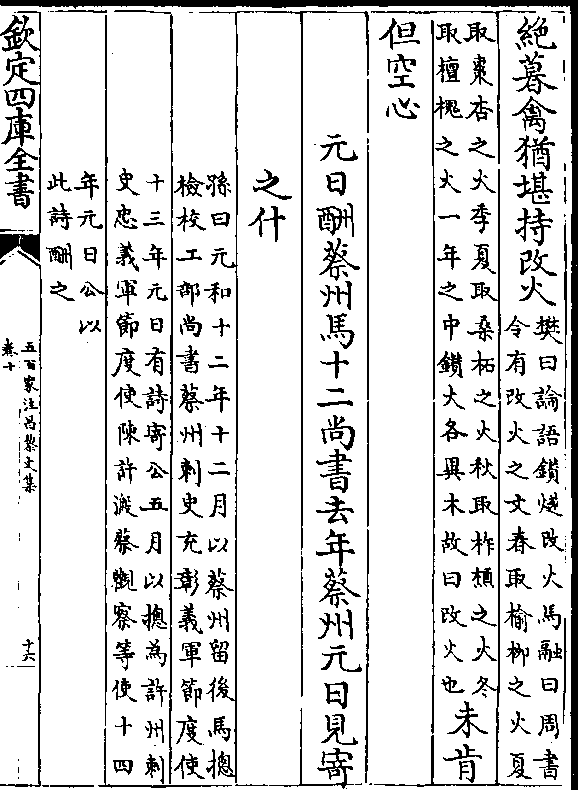 絶暮禽猶堪持改火
樊曰論語鑽燧改火馬融曰周書
令有改火之文春取榆栁之火夏
取棗杏之火季夏取桑柘之火秋取柞楢之火冬
取檀槐之火一年之中鑽火各異木故曰改火也
未肯
但空心
元日酬蔡州馬十二尚書去年蔡州元日見寄
之什
孫曰元和十二年十二月以蔡州留後馬揔
檢校工部尚書蔡州刺史充彰義軍節度使
十三年元日有詩寄公五月以揔為許州刺
史忠義軍節度使陳許溵蔡觀察等使十四
年元日公以
此詩酬之
欽定四庫全書
五百家注昌黎文集
卷十
十六